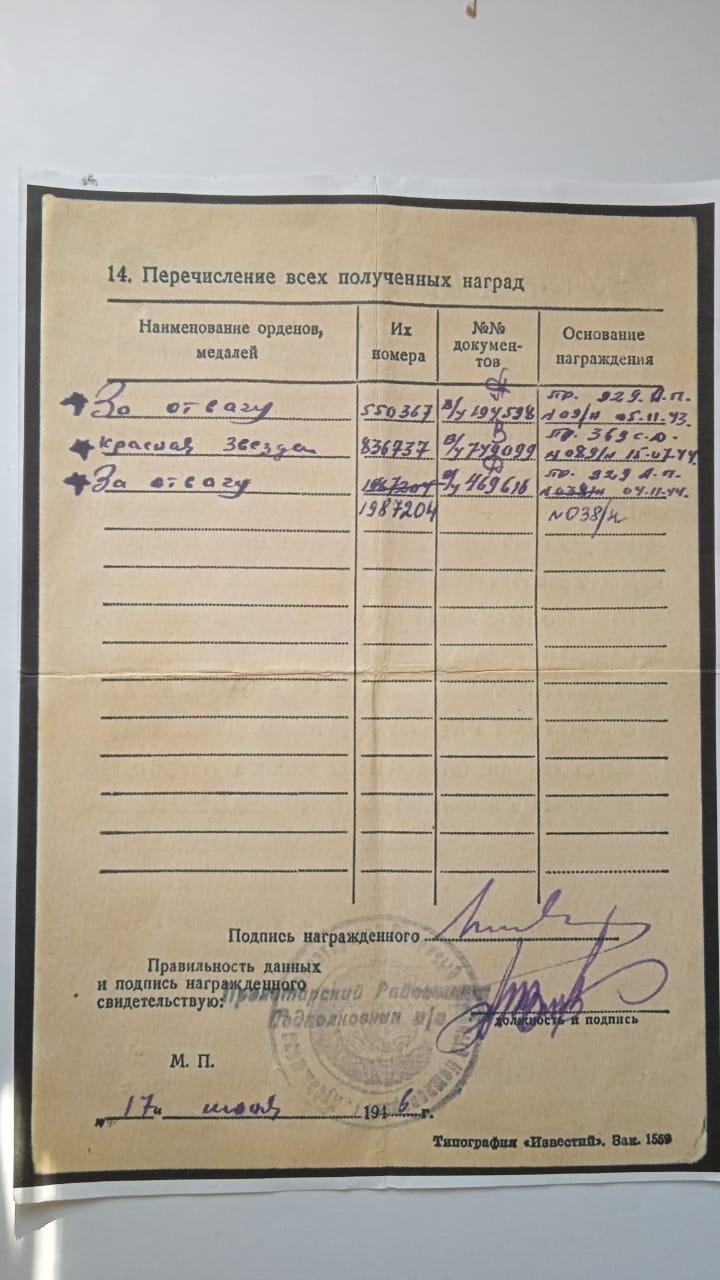 14. Перечисление всех полученных наград
Наименование орденов, медалей
Их номера
№№ докумен-тов
Основание награждения
За отвагу 550367 В/ч 194598 Пр. 929 А.П. №09/н 05.11.43.
Красная Звезда 836737 749099 Пр. 369 с.д. №089/н 15.07.44
За отвагу 1987204 469616 Пр. 929 А.П. №038/н 04.11.44.
1987204 №038/н
Подпись награжденного
Правильность данных
и подпись награжденного
свидетельствую:
Пролетарский Районный
Подполковник
должность и подпись
М. П.
„17" 1946 г.
Типография «Известий». Зак. 1559